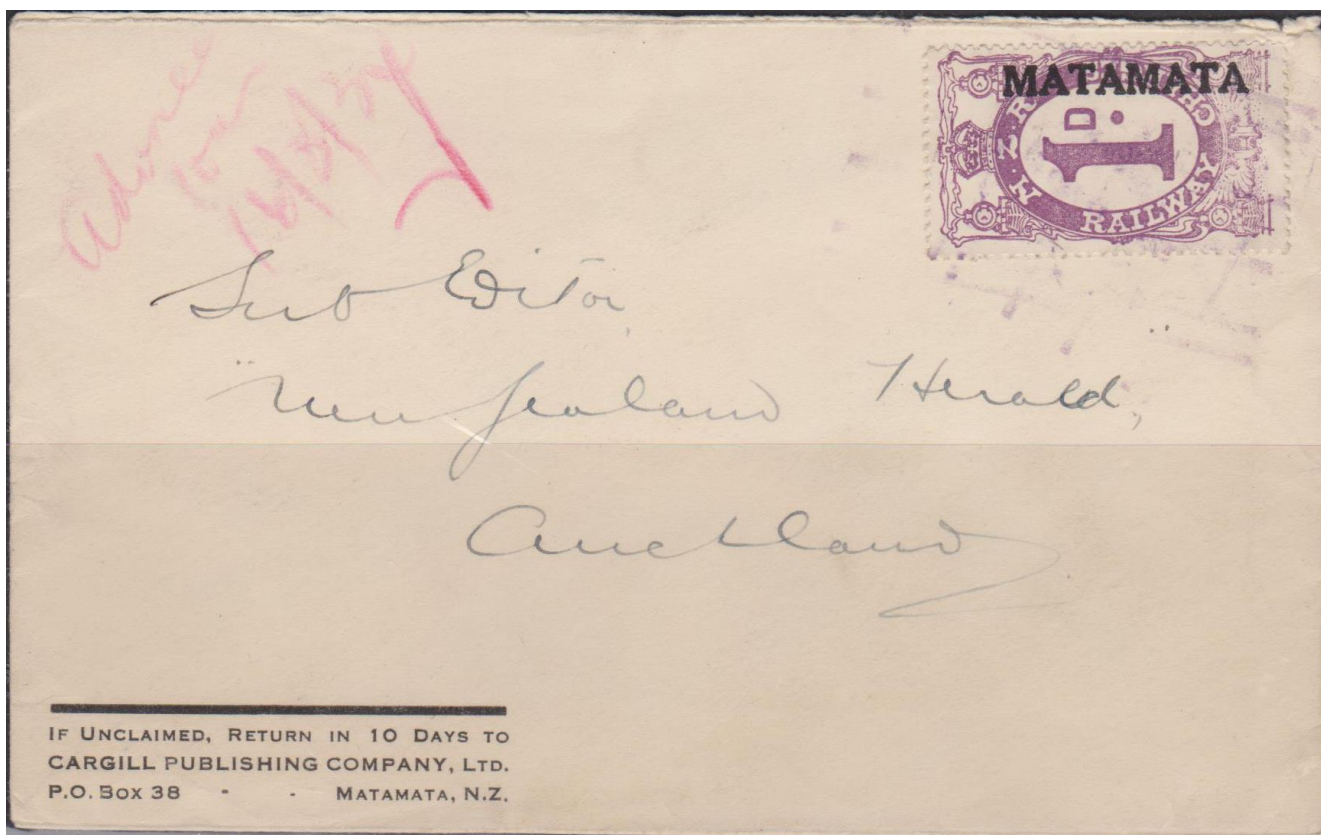 MATAMATA
N.Z. RAILWAY
1D.
Sub Editor,
"New Zealand Herald,"
Auckland
IF UNCLAIMED, RETURN IN 10 DAYS TO
CARGILL PUBLISHING COMPANY, LTD.
P.O. BOX 38 - - MATAMATA, N.Z.